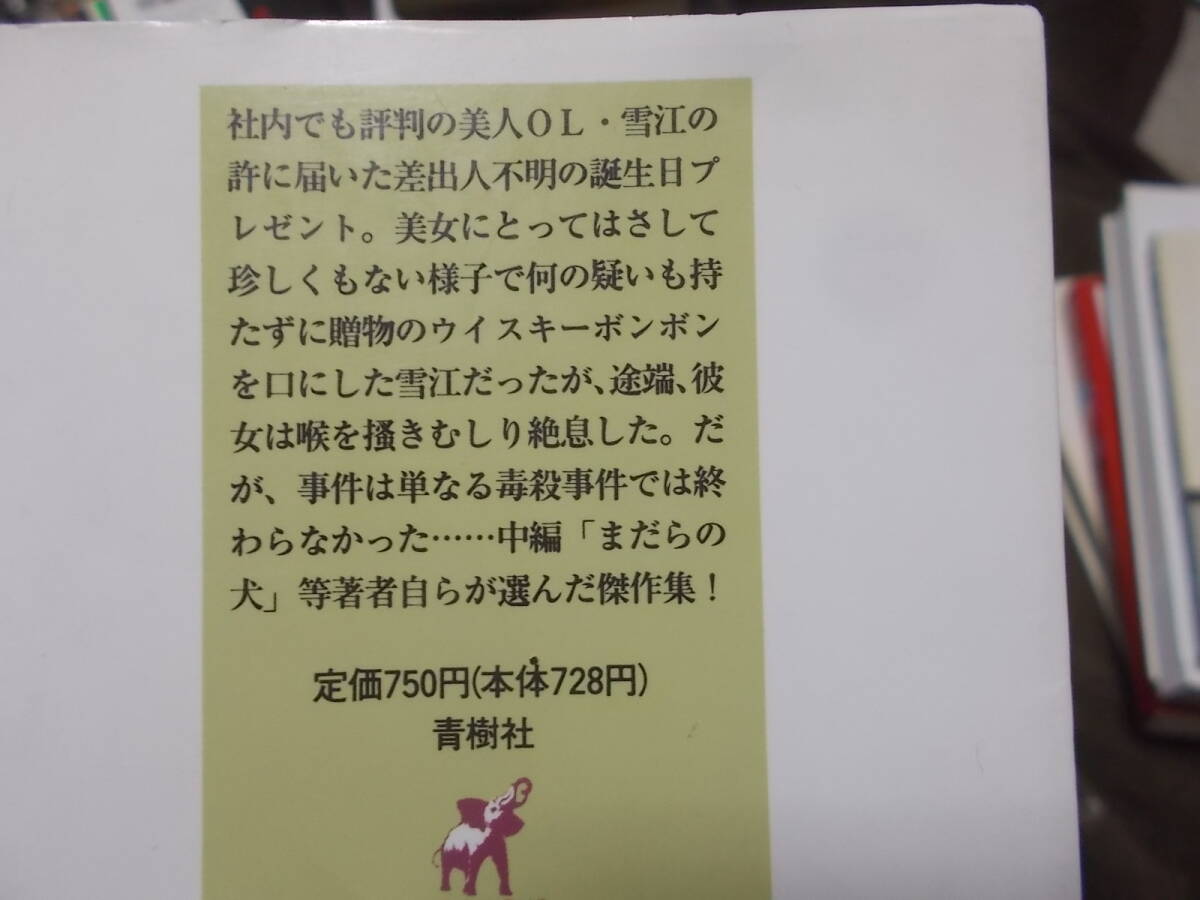 社内でも評判の美人OL・雪江の
許に届いた差出人不明の誕生日プ
レゼント。美女にとってはさして
珍しくもない様子で何の疑いも持
たずに贈物のウイスキーボンボン
を口にした雪江だったが、途端、彼
女は喉を掻きむしり絶息した。だ
が、事件は単なる毒殺事件では終
わらなかった……中編「まだらの
犬」等著者自らが選んだ傑作集！
定価750円(本体728円)
青樹社